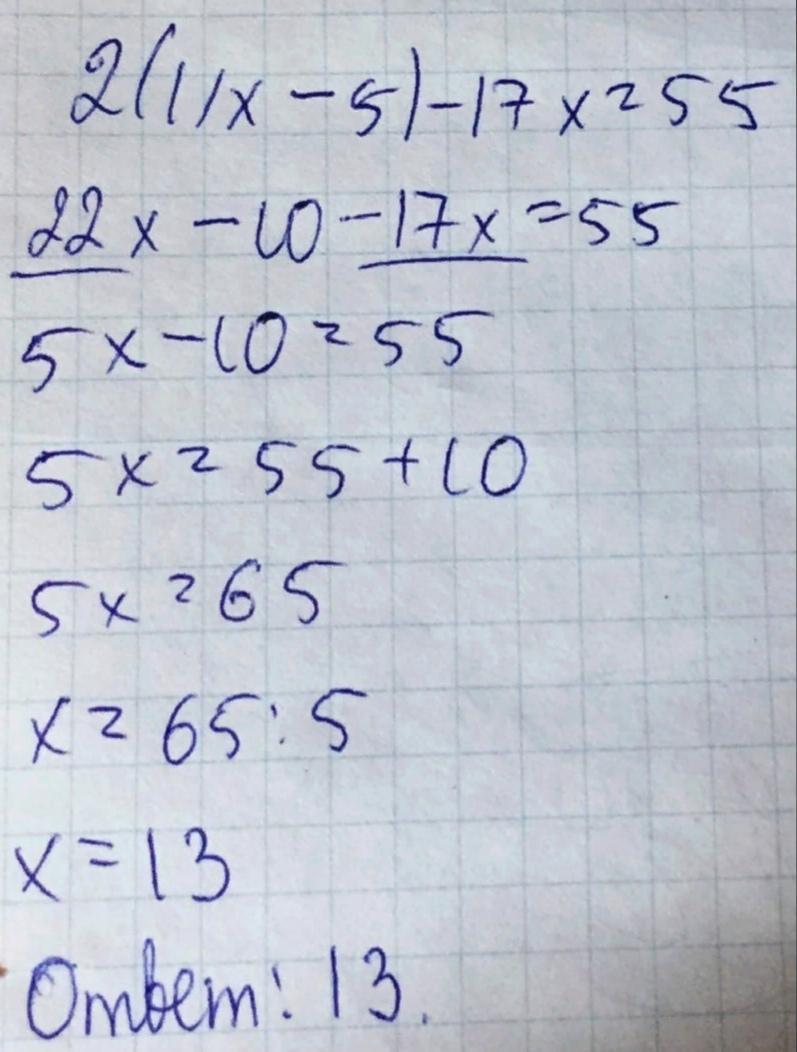 2(11x - 5) - 17x = 55
22x - 10 - 17x = 55
5x - 10 = 55
5x = 55 + 10
5x = 65
x = 65 : 5
x = 13
Ответ: 13.